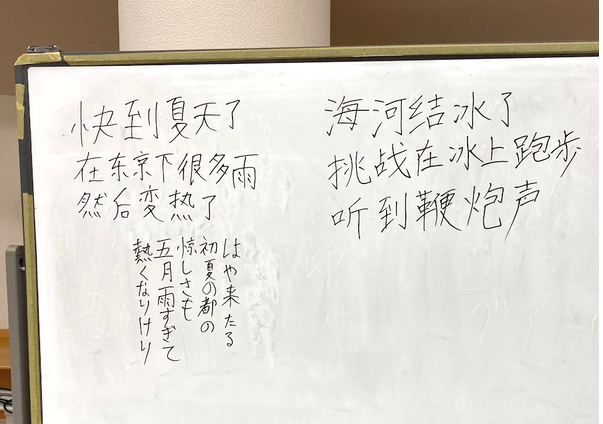 快到夏天了
在东京下很多雨
然后変热了
はや来たる
初夏の都の
惊しさも
五月雨すぎて
熱くなりけり
海河结冰了
挑战在冰上跑步
听到鞭炮声